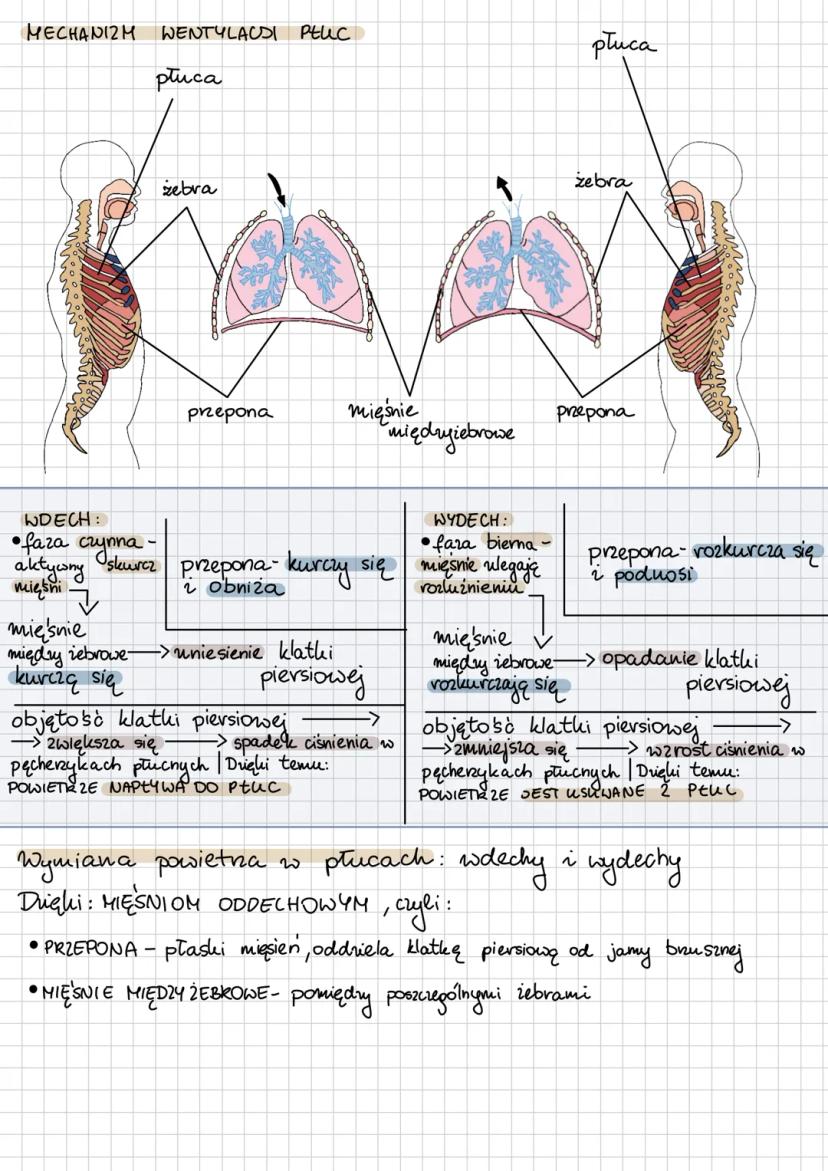 MECHANIZM WENTYLACJI PŁUC
płuca
płuca
żebra
żebra
przepona
mięśnie
międzyżebrowe
przepona
WDECH:
• faza czynna -
aktywny skurcz
mięśni
przepona - kurczy się
i obniża
mięśnie
między żebrowe → uniesienie klatki
kurczą się piersiowej
objętość klatki piersiowej →
→ zwiększa się → spadek ciśnienia w
pęcherzykach płucnych | Dzięki temu:
POWIETRZE NAPŁYWA DO PŁUC
WYDECH:
• faza bierna -
mięśnie ulegają
rozluźnieniu
przepona - rozkurcza się
i podnosi
mięśnie
między żebrowe → opadanie klatki
rozkurczają się piersiowej
objętość klatki piersiowej →
→ zmniejsza się → wzrost ciśnienia w
pęcherzykach płucnych | Dzięki temu:
POWIETRZE JEST USUWANE Z PŁUC
Wymiana powietrza w płucach: wdechy i wydechy
Dzięki: MIĘŚNIOM ODDECHOWYM, czyli:
• PRZEPONA - płaski mięsień, oddziela klatkę piersiową od jamy brzusznej
• MIĘŚNIE MIĘDZYŻEBROWE - pomiędzy poszczególnymi żebrami